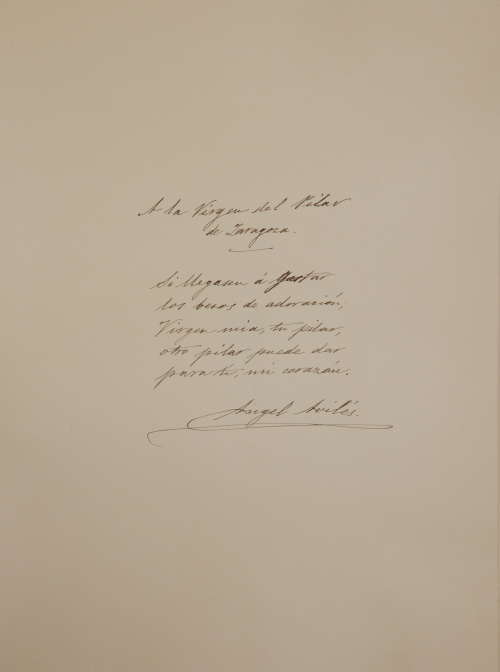 A la Virgen del Pilar
de Zaragoza.
Si llegasen á gastar
los besos de adoración,
Virgen mia, tu pilar,
otro pilar puede dar
para ti, mi corazón.
Angel Avilés.